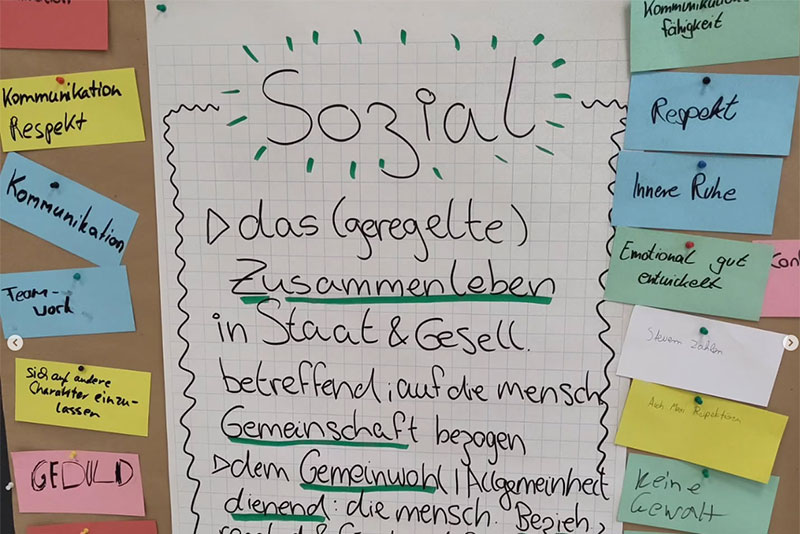 Kommunikation
Respekt
Kommunikation
Team-
work
Sich auf andere
Charakter einzu-
lassen
GEDULD
Sozial
▷das (geregelte)
Zusammenleben
in Staat & Gesell.
betreffend; auf die mensch
Gemeinschaft bezogen
▷dem Gemeinwohl | Allgemeinheit
dienend: die mensch. Bezieh,
fähigkeit
Respekt
Innere Ruhe
Emotional gut
entwickelt
Steuern Zahlen
Keine
Gewalt